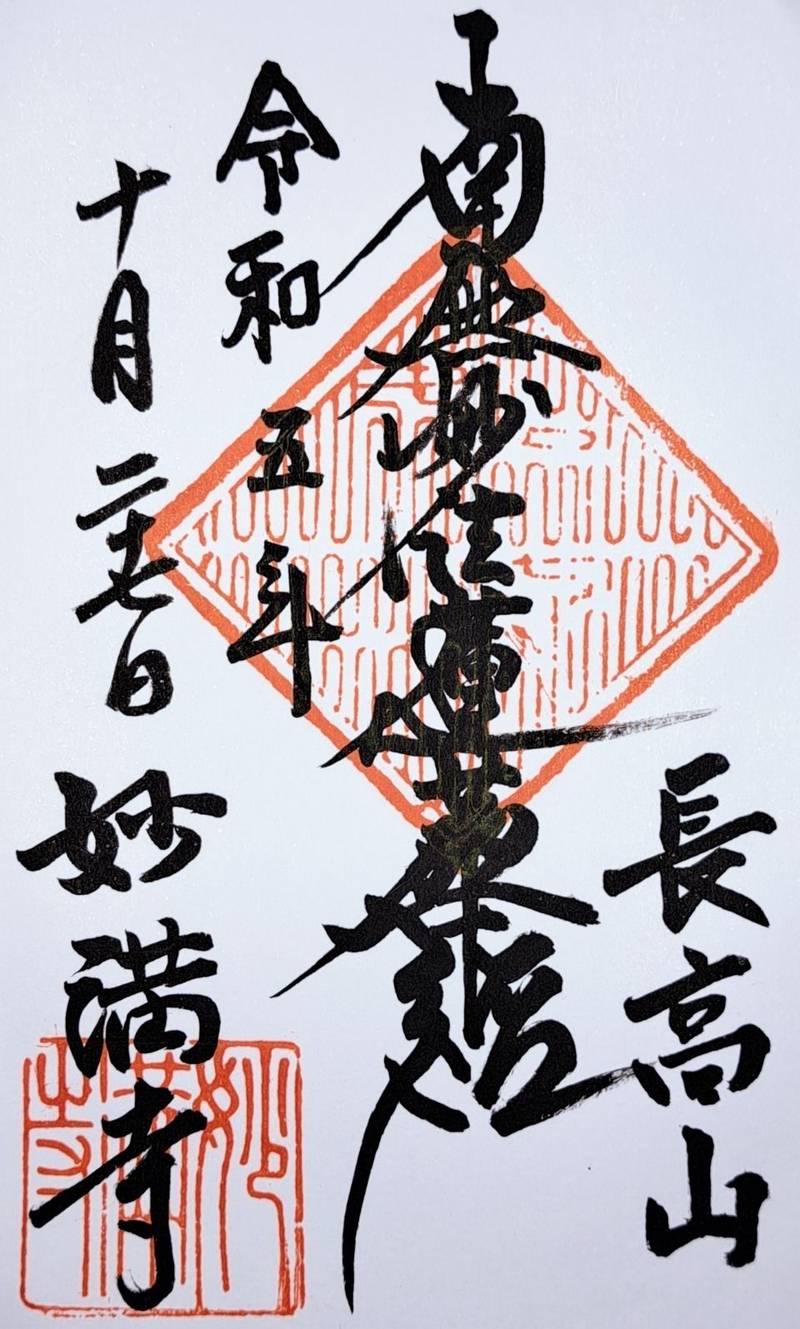 長高山
南無妙法蓮華経
令和五年
十月二十七日
妙満寺
妙満寺